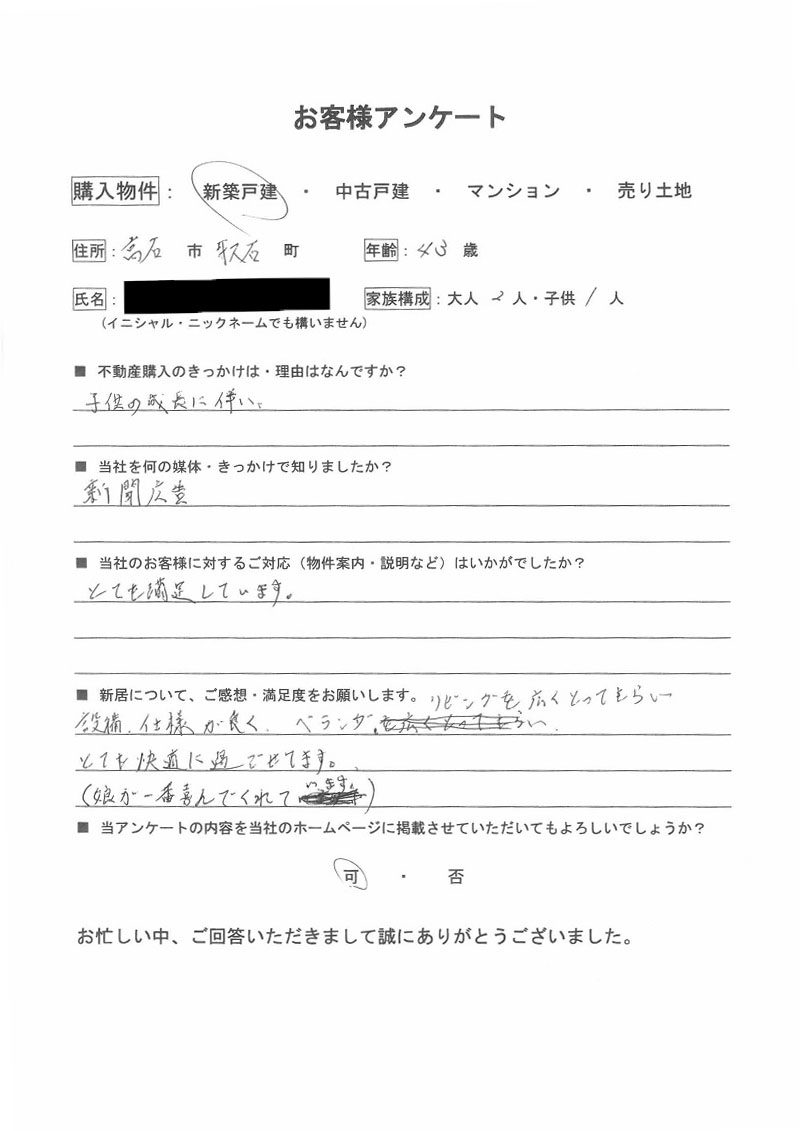 お客様アンケート
購入物件： 新築戸建 ・ 中古戸建 ・ マンション ・ 売り土地
住所： 高石 市 取石 町 年齢： 43 歳
氏名： 家族構成：大人 2 人・子供 1 人
（イニシャル・ニックネームでも構いません）
■ 不動産購入のきっかけは・理由はなんですか？
子供の成長に伴い。
■ 当社を何の媒体・きっかけで知りましたか？
新聞広告
■ 当社のお客様に対するご対応（物件案内・説明など）はいかがでしたか？
とても満足しています。
■ 新居について、ご感想・満足度をお願いします。 リビングを広くとってもらい
設備、仕様が良く、ベランダを広くとってもらい、
とても快適に過ごせてます。
（娘が一番喜んでくれています。）
■ 当アンケートの内容を当社のホームページに掲載させていただいてもよろしいでしょうか？
可 ・ 否
お忙しい中、ご回答いただきまして誠にありがとうございました。